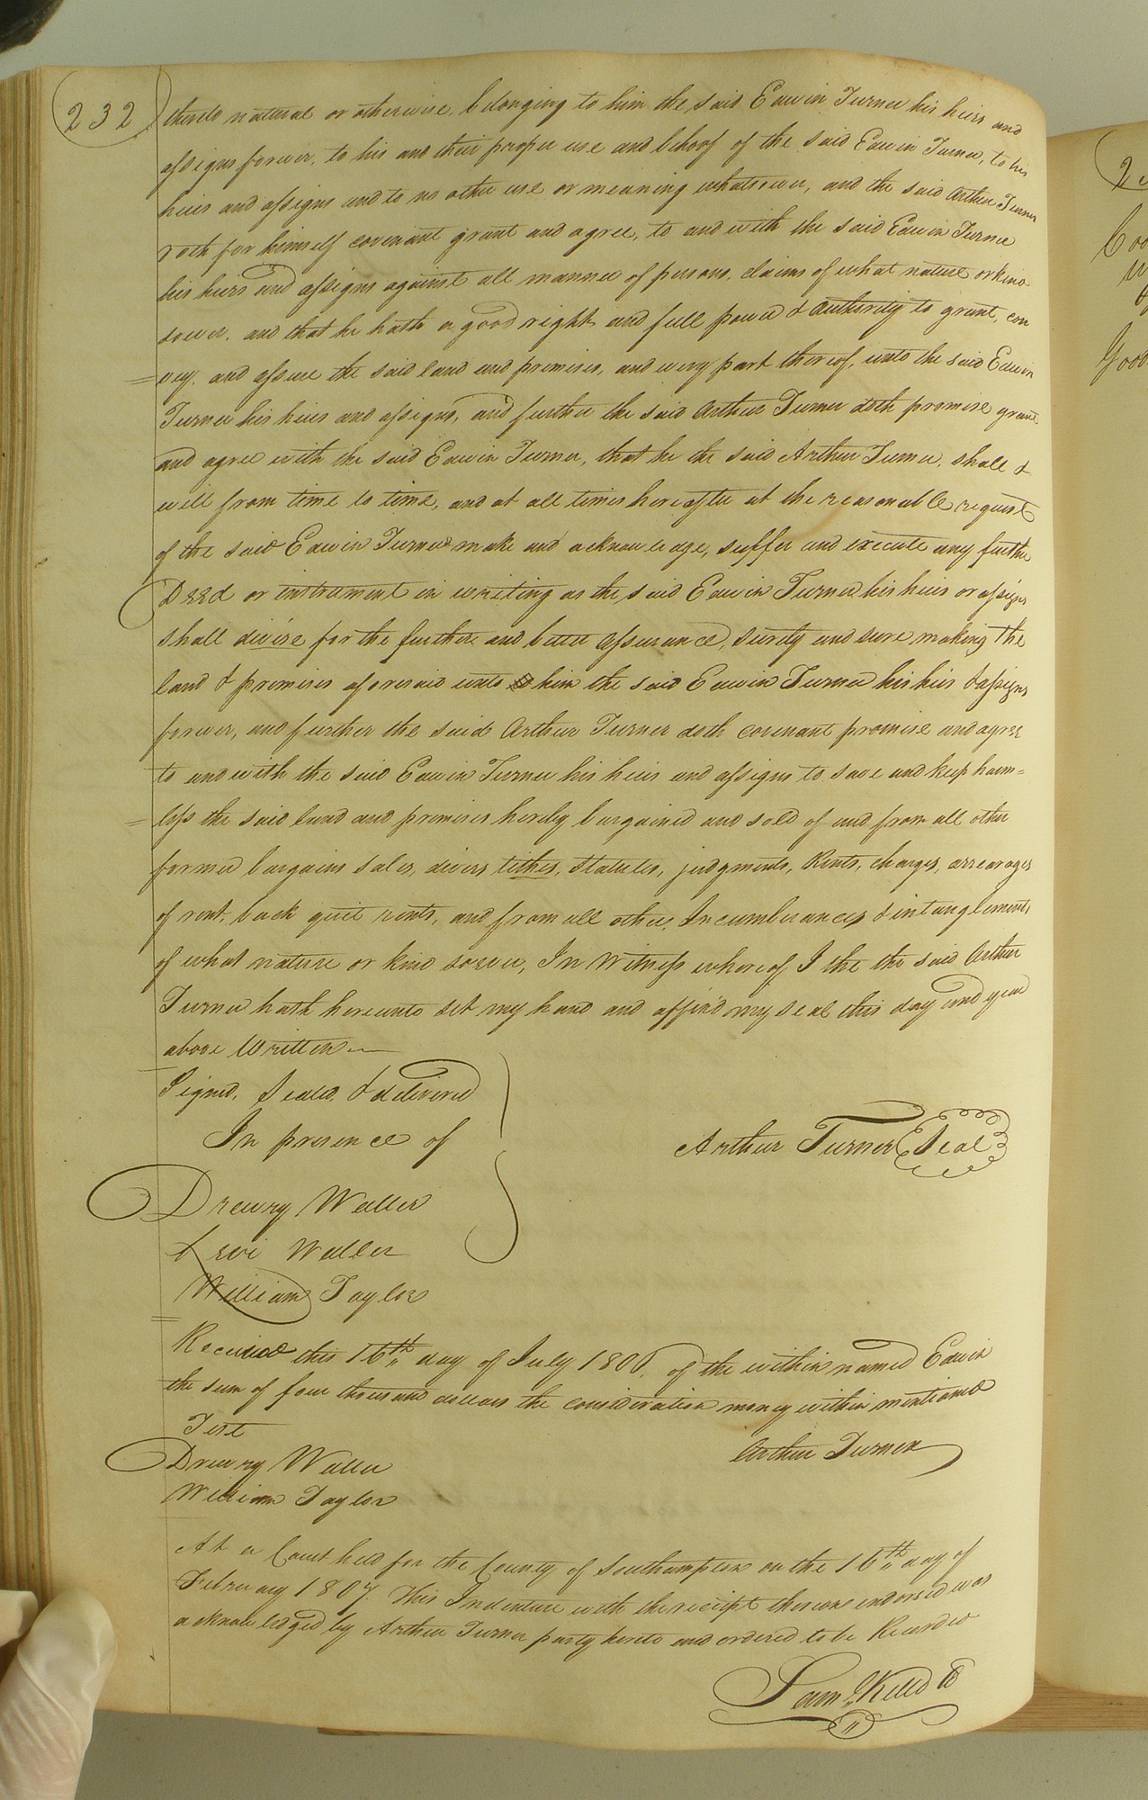 232
thereto natural or otherwise, belonging to him the said Edwin Turner his heirs and
assigns forever, to his and their proper use and behoof of the said Edwin Turner, to his
heirs and assigns and to no other use or meaning whatsoever, and the said Arthur Turner
doth for himself covenant grant and agree, to and with the said Edwin Turner
his heirs and assigns against all manner of persons, claims of what nature or kind
soever. and that he hath a good right and full power & Authority to grant, con
vey, and assure the said land and premises, and every part thereof, unto the said Edwin
Turner his heirs and assigns, and further the said Arthur Turner doth promise grant
and agree with the said Edwin Turner, that he the said Arthur Turner, shall &
will from time to time, and at all times hereafter at the reasonable request
of the said Edwin Turner make and acknowledge, suffer and execute any further
Deed or instrument in writing as the said Edwin Turner his heirs or assigns
shall divise for the further and better Assurance, surety and sure making the
land & premises aforesaid unto him the said Edwin Turner his heirs & assigns
forever, and further the said Arthur Turner doth covenant promise and agree
to and with the said Edwin Turner his heirs and assigns to save and keep harm=
=less the said land and premises hereby bargained and sold of and from all other
former bargains sales, divers tithes, statutes, judgments, Rents, charges, arrearages
of rent, back quit rents, and from all other Incumberances & intanglements
of what nature or kind soever, In Witness whereof I the the said Arthur
Turner hath hereunto set my hand and affixd my seal this day and year
above Written
Signed, Sealed, & delivered
In presence of
Arthur Turner Seal
Drewry Waller
Levi Waller
William Taylor
Received this 16th day of July 1806, of the within named Edwin
the sum of four thousand dollars the consideration money within mentioned
Test
Arthur Turner
Drewry Waller
William Taylor
At a Court held for the County of Southampton on the 16th day of
February 1807. This Indenture with the receipt thereon endorsed was
acknowledged by Arthur Turner party hereto and ordered to be Recorded
Saml. Kello
Good